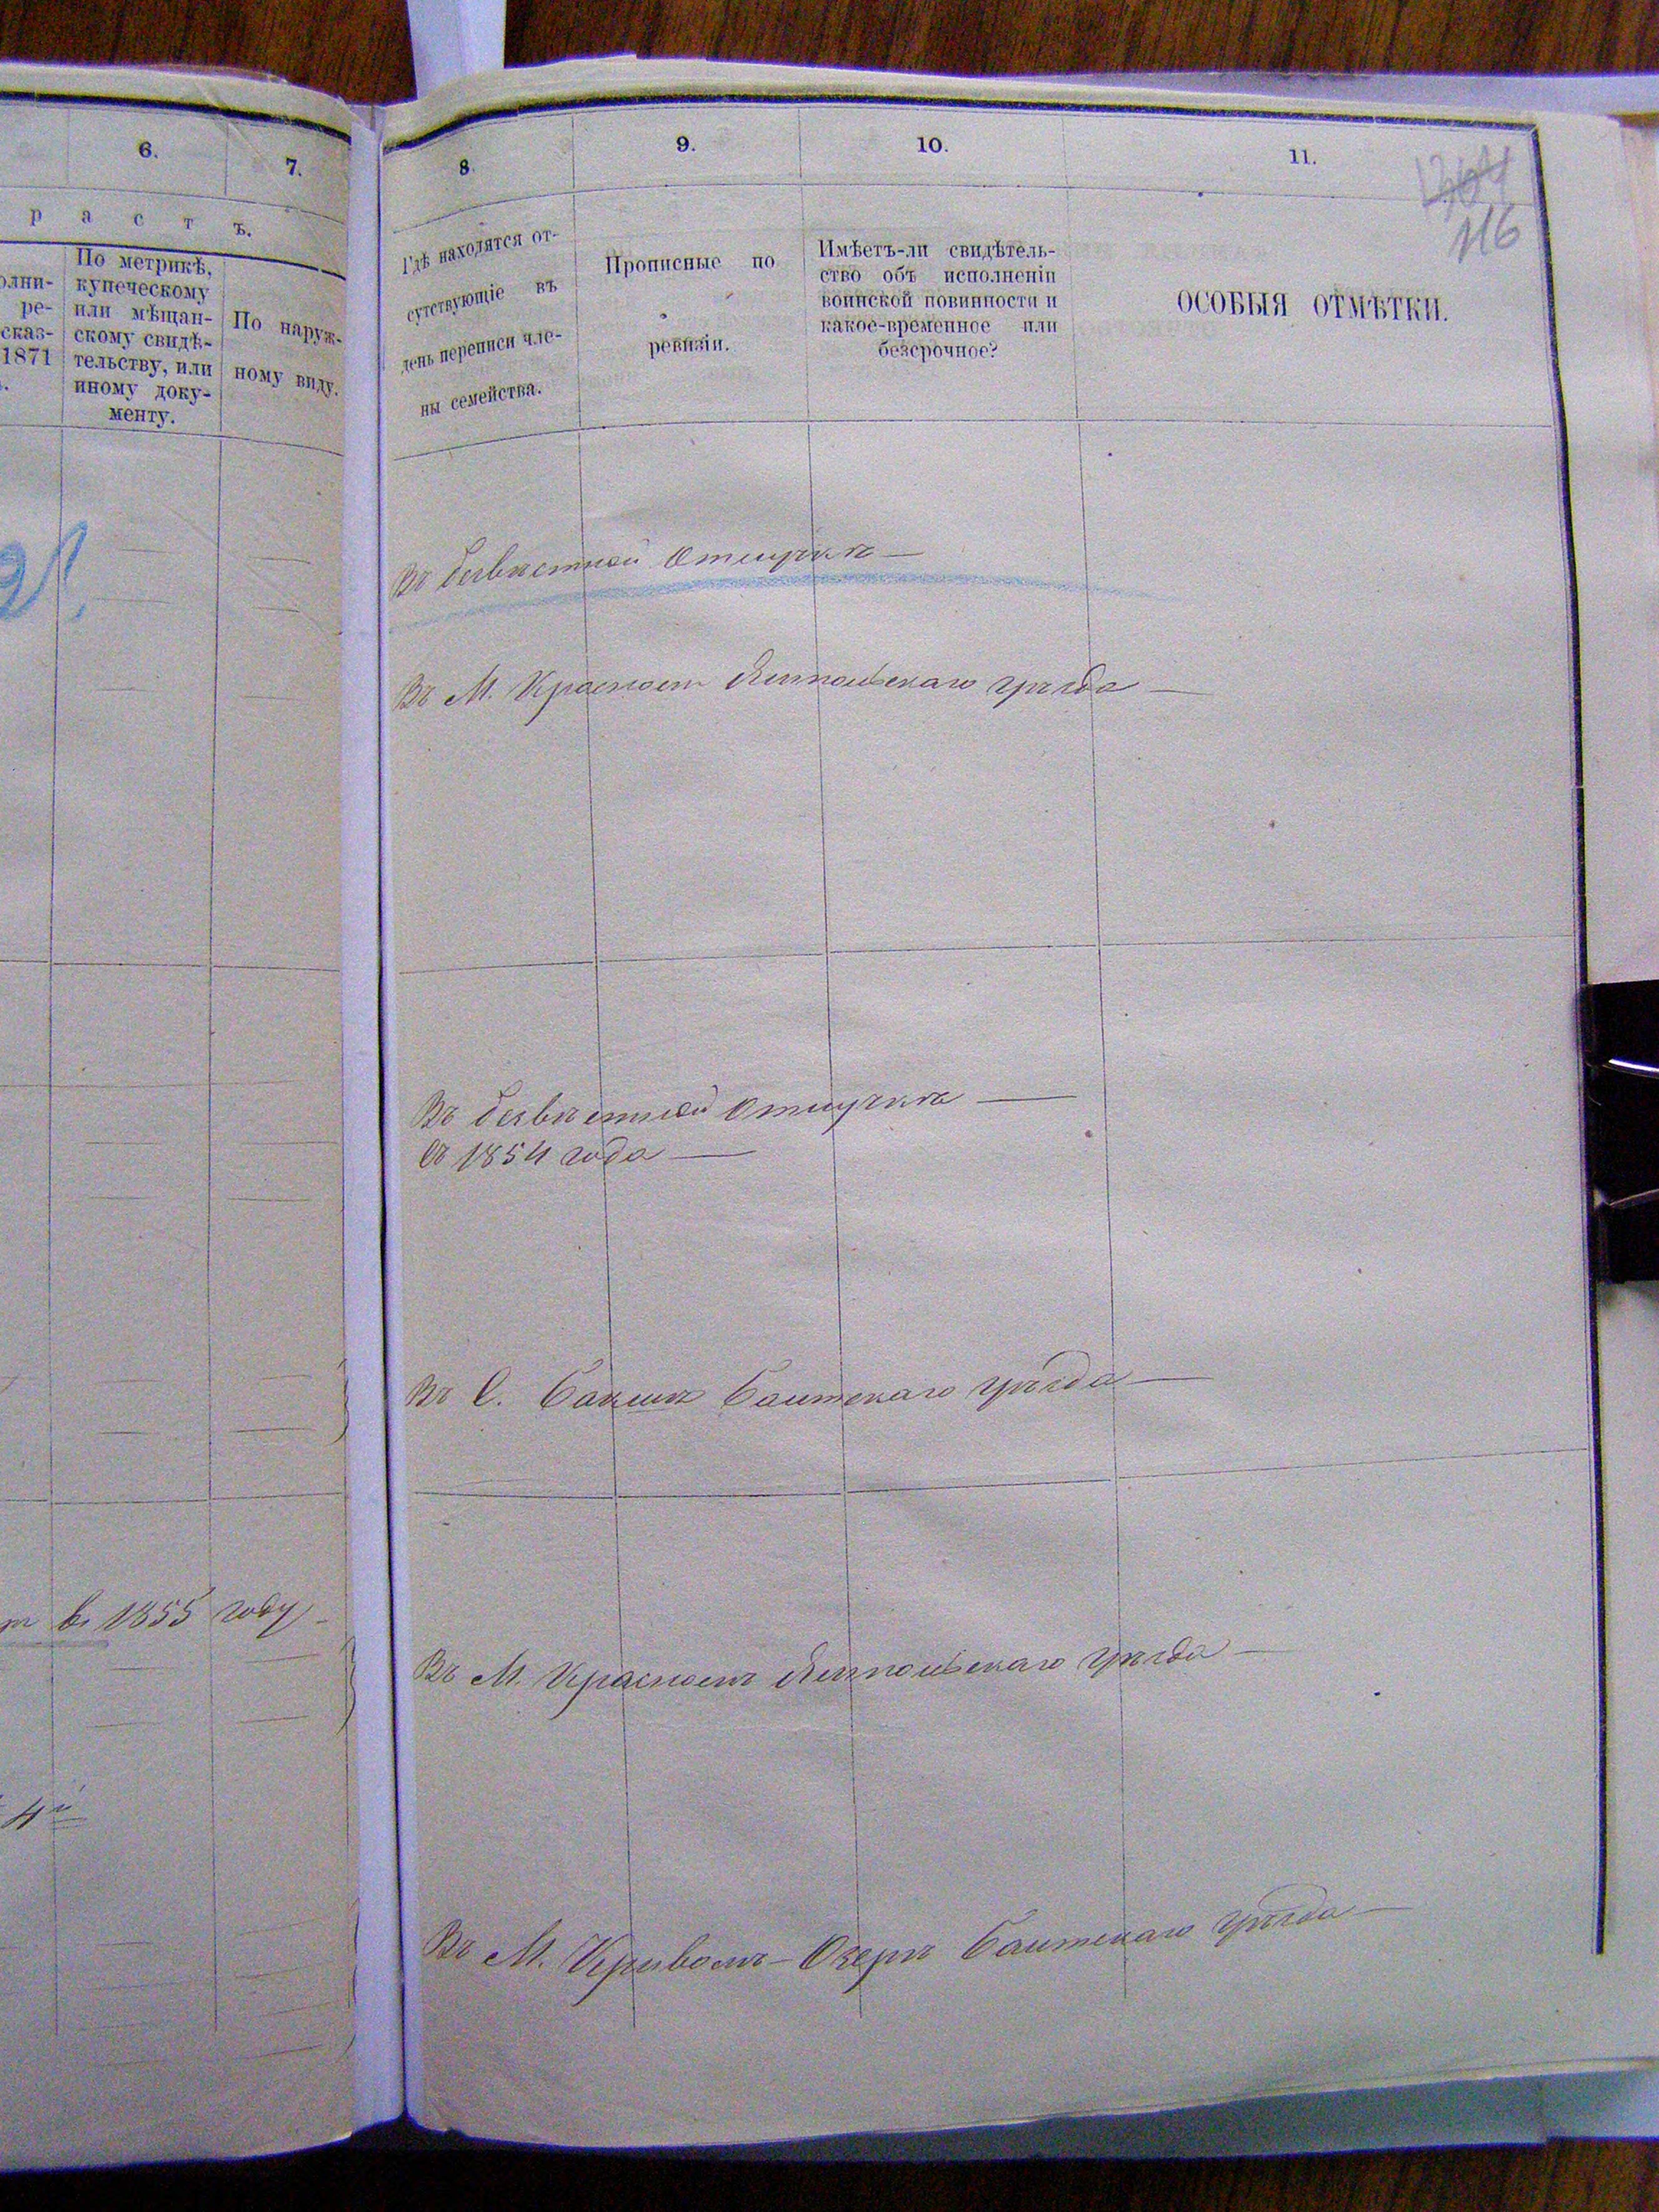 6.
7.
р а с т ъ.
олни-
ре-
сказ-
1871
По метрикѣ,
купеческому
или мѣщан-
скому свидѣ-
тельству, или
иному доку-
менту.
По наруж-
ному виду.
въ 1855 году
8.
9.
10.
11.
116
Гдѣ находятся от-
сутствующіе въ
день переписи чле-
ны семейства.
Прописные по
ревизіи.
Имѣетъ-ли свидѣтель-
ство объ исполненіи
воинской повинности и
какое-временное или
безсрочное?
ОСОБЫЯ ОТМѢТКИ.
Въ безвѣстной Отлучкѣ —
Въ М. Красномъ Ямпольскаго уѣзда —
Въ безвѣстной Отлучкѣ —
Съ 1854 года —
Въ С. Бакшѣ Балтскаго уѣзда —
Въ М. Красномъ Ямпольскаго уѣзда —
Въ М. Кривомъ-Озерѣ Балтскаго уѣзда —